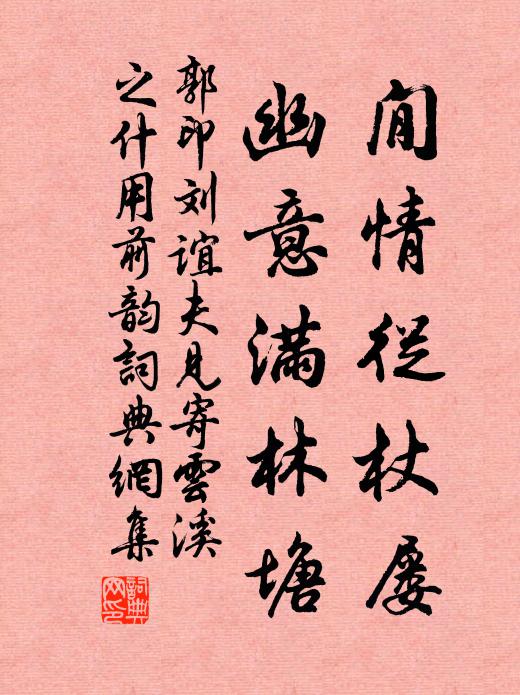 閒情從杖屨
幽意滿林塘
郭印刘誼夫見寄雲溪
之什用前韵詞典網集
詞典網印